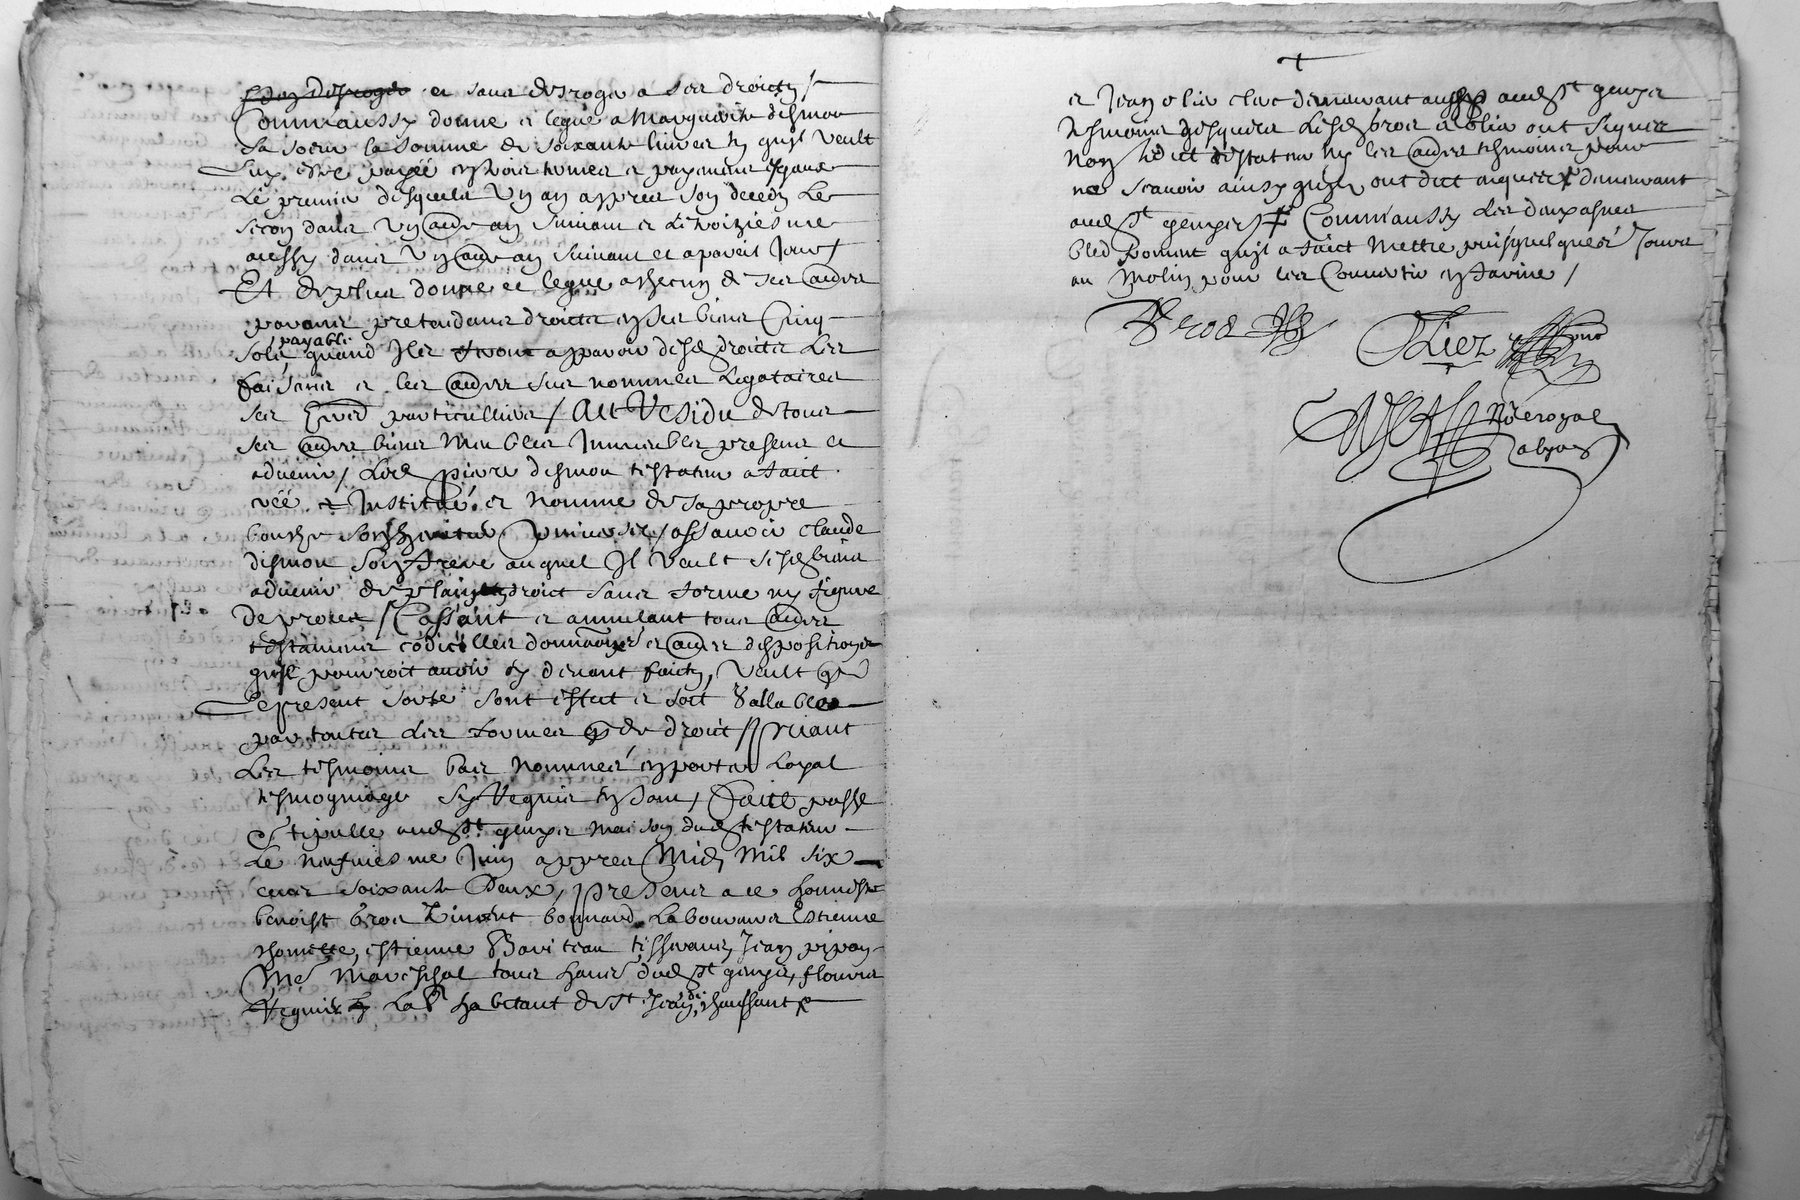 et sans desroger a ses droicts /
Comm'aussy donne et legue a Marguerite desmon
sa soeur la somme de soixante livres qu'il veult
luy estre payée en trois termes et payements esgaux
Le premier desquels un an appres son deceds Le
second dans un autre an suivant et le troiziesme
aussy dans un autre an suivant et a pareil Jour /
Et de plus donne et legue a chacun de ses autres
parans pretendans droicts en ses biens Cinq
payable
solz quand Ils feront apparoir desd droicts Les
faisans et les autres sus nommes Legataires
ses particulliers / Au Residu de tous
ses autres biens Meubles Immeubles presens et
advenir / Led pierre desmon testateur a faict
creé et Institué et nomme de sa propre
bouche son heritier universel / assavoir claude
desmon son frere auquel Il veult sesd biens
advenir de plain droict sans forme ny figure
De proces / Cassant et annulant tous autres
testamens codicilles donnaons et autres dispositions
qu'il pourroit avoir cy devant faicts, veult que
Le present sorte sont effect et soit vallable
par toutes Les formes que de droict / priant
Les tesmoins bas nommes en porter Loyal
tesmognage Faict passe
Stipulle aud St maison dud testateur
Le neufviesme Juin appres Midy Mil six
cens soixante Deux, presens a ce honneste
benoist bros Vincent bonnard Laboureurs Estienne
thomette, estienne tisserans Jean pipon
Me Mareschal tous dud St
habitant de St Jean
+
et Jean olier clerc demeurant aussy aud St
tesmoins desquels Lesd bros et olier ont signes
Non Ledict testateur ny les autres tesmoins pour
ne scavoir ainsy qu'ils ont dict enquis demeurant
aud St Comm'aussy Les deux asnes
bled froment qu'il a faict Mettre puis quelques Jours
au Molin pour les Convertir en farine /
Bros
Olier
Nore royal